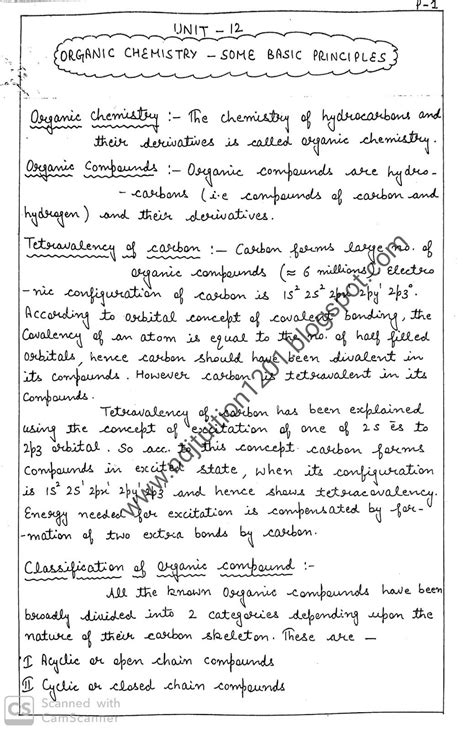 P-1
UNIT - 12
ORGANIC CHEMISTRY - SOME BASIC PRINCIPLES
Organic Chemistry :- The chemistry of hydrocarbons and
their derivatives is called organic chemistry.
Organic Compounds :- Organic compounds are hydro-
-carbons (i.e compounds of carbon and
hydrogen) and their derivatives.
Tetravalency of carbon :- Carbon forms large no. of
organic compounds (≈ 6 millions). Electro
-nic configuration of carbon is 1s² 2s² 2px¹ 2py¹ 2p3⁰.
According to orbital concept of covalent bonding, the
Covalency of an atom is equal to the no. of half filled
orbitals, hence carbon should have been divalent in
its compounds. However carbon is tetravalent in its
Compounds.
Tetravalency of carbon has been explained
using the concept of excitation of one of 2s es to
2p3 orbital. So acc. to this concept carbon forms
Compounds in excited state, when its configuration
is 1s² 2s¹ 2px¹ 2py¹ 2p3¹ and hence shows tetracovalency.
Energy needed for excitation is compensated by for-
-mation of two extra bonds by carbon.
Classification of Organic compound :-
All the known Organic compounds have been
broadly divided into 2 categories depending upon the
nature of their carbon skeleton. These are —
I Acyclic or open chain compounds
II Cyclic or closed chain compounds
www.adjtuition1201.blogspot.com
CS Scanned with
CamScanner